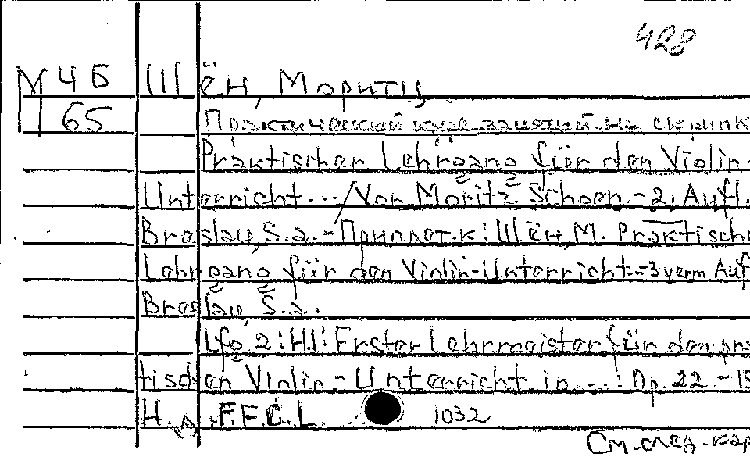 428
М 4Б Шён, Моритц
П 65 Практический курс занятий на скрипк
Praktischer Lehrgang für den Violin-
Unterricht... / Von Moritz Schoen.-2. Aufl.
Breslau, S.a.-Приплет.к: Шён, М. Praktisch
Lehrgang für den Violin-Unterricht.-3 verm Auf
Breslau, S.a.
Lfg, 2: Hl: Erster Lehrmeister für den pra
tischen Violin-Unterricht in...: Op. 22.-15
H. F.E.C.L. 1032
См. след. кар